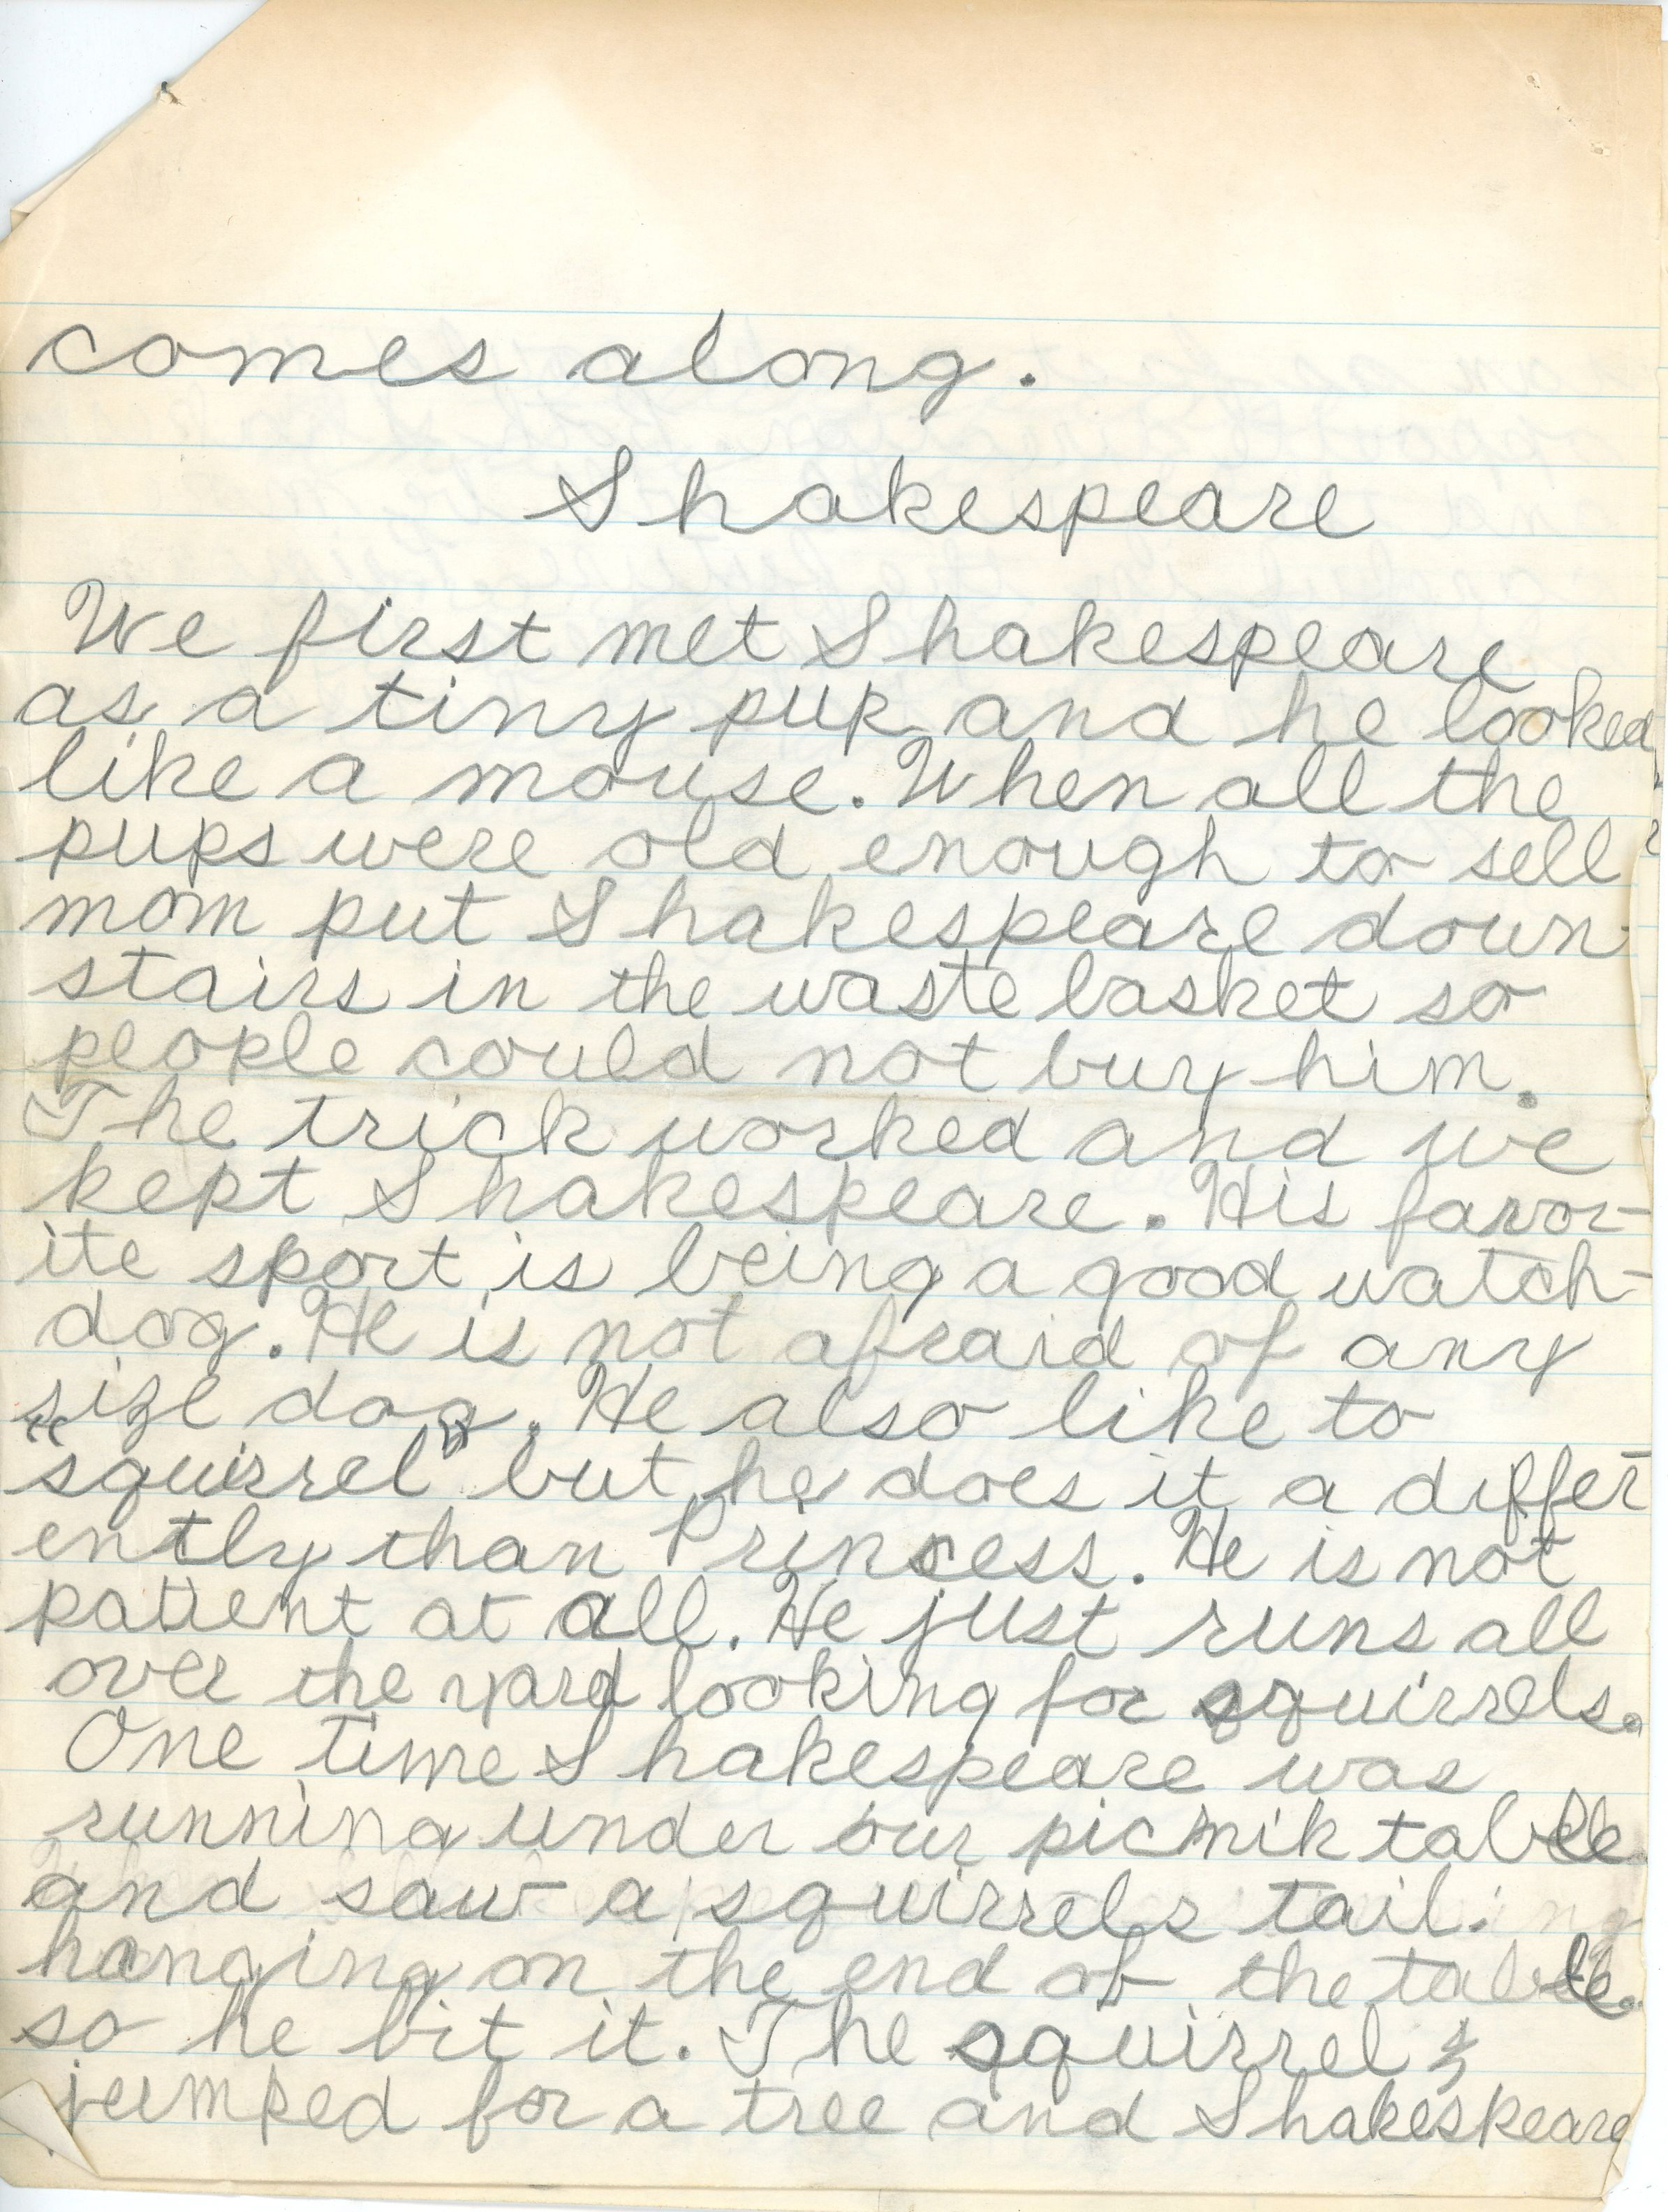 comes along.
Shakespeare
We first met Shakespeare
as a tiny pup and he looked
like a mouse. When all the
pups were old enough to sell
mom put Shakespeare down-
stairs in the waste basket so
people could not buy him.
The trick worked and we
kept Shakespeare. His favor-
ite sport is being a good watch-
dog. He is not afraid of any
size dog. He also like to
"squirrel" but he does it a differ-
ently than Princess. He is not
patient at all. He just runs all
over the yard looking for squirrels.
One time Shakespeare was
running under our picnik table
and saw a squirrels tail.
hanging on the end of the table.
so he bit it. The squirrel
jumped for a tree and Shakespeare